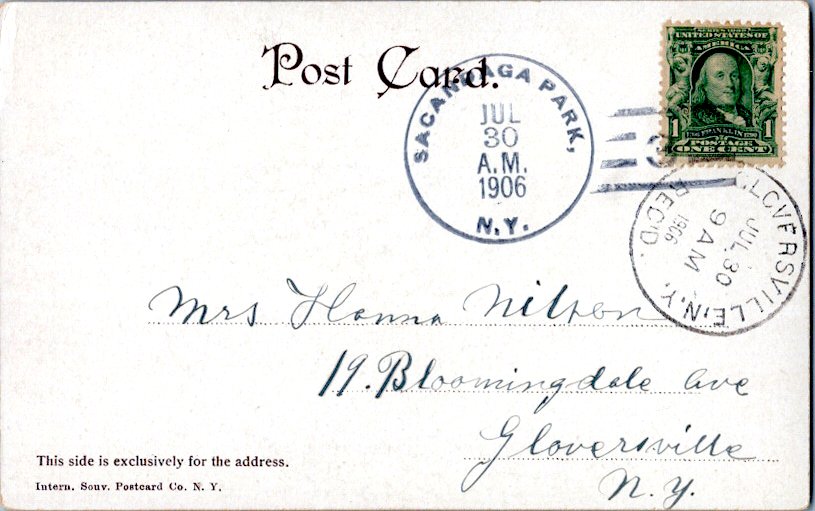 Post Card.
SACANDAGA PARK,
JUL
30
A.M.
1906
N.Y.
SERIES 1902
UNITED STATES OF
AMERICA
1 FRANKLIN 1
POSTAGE
ONE CENT
GLOVERSVILLE, N.Y.
JUL 30
9 AM
1906
REC'D.
Mrs Hanna Nilson
19. Bloomingdale Ave
Gloversville
N.Y.
This side is exclusively for the address.
Intern. Souv. Postcard Co. N. Y.